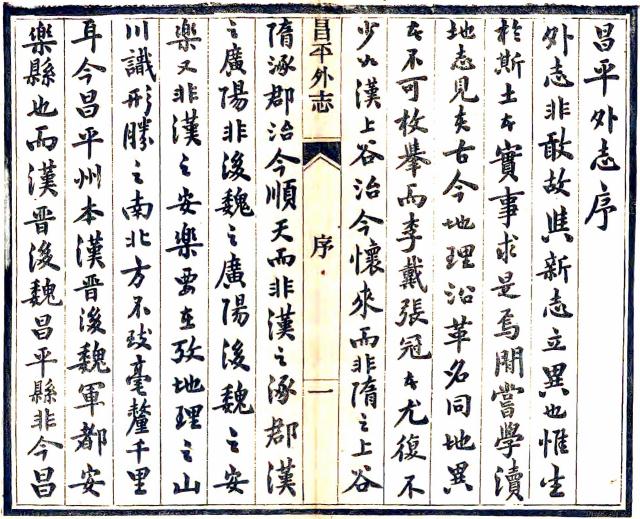 昌平外志序
外志非敢故與新志立異也惟生
於斯土者實事求是焉閒嘗學瀆
地志見夫古今地理沿革名同地異
者不可枚舉而李戴張冠者尤復不
少如漢上谷治今懷來而非隋之上谷
昌平外志
序
一
隋涿郡治今順天而非漢之涿郡漢
之廣陽非後魏之廣陽後魏之安
樂又非漢之安樂要在攷地理之山
川識形勝之南北方不致毫釐千里
耳今昌平州本漢晉後魏軍都安
樂縣也而漢晉後魏昌平縣非今昌